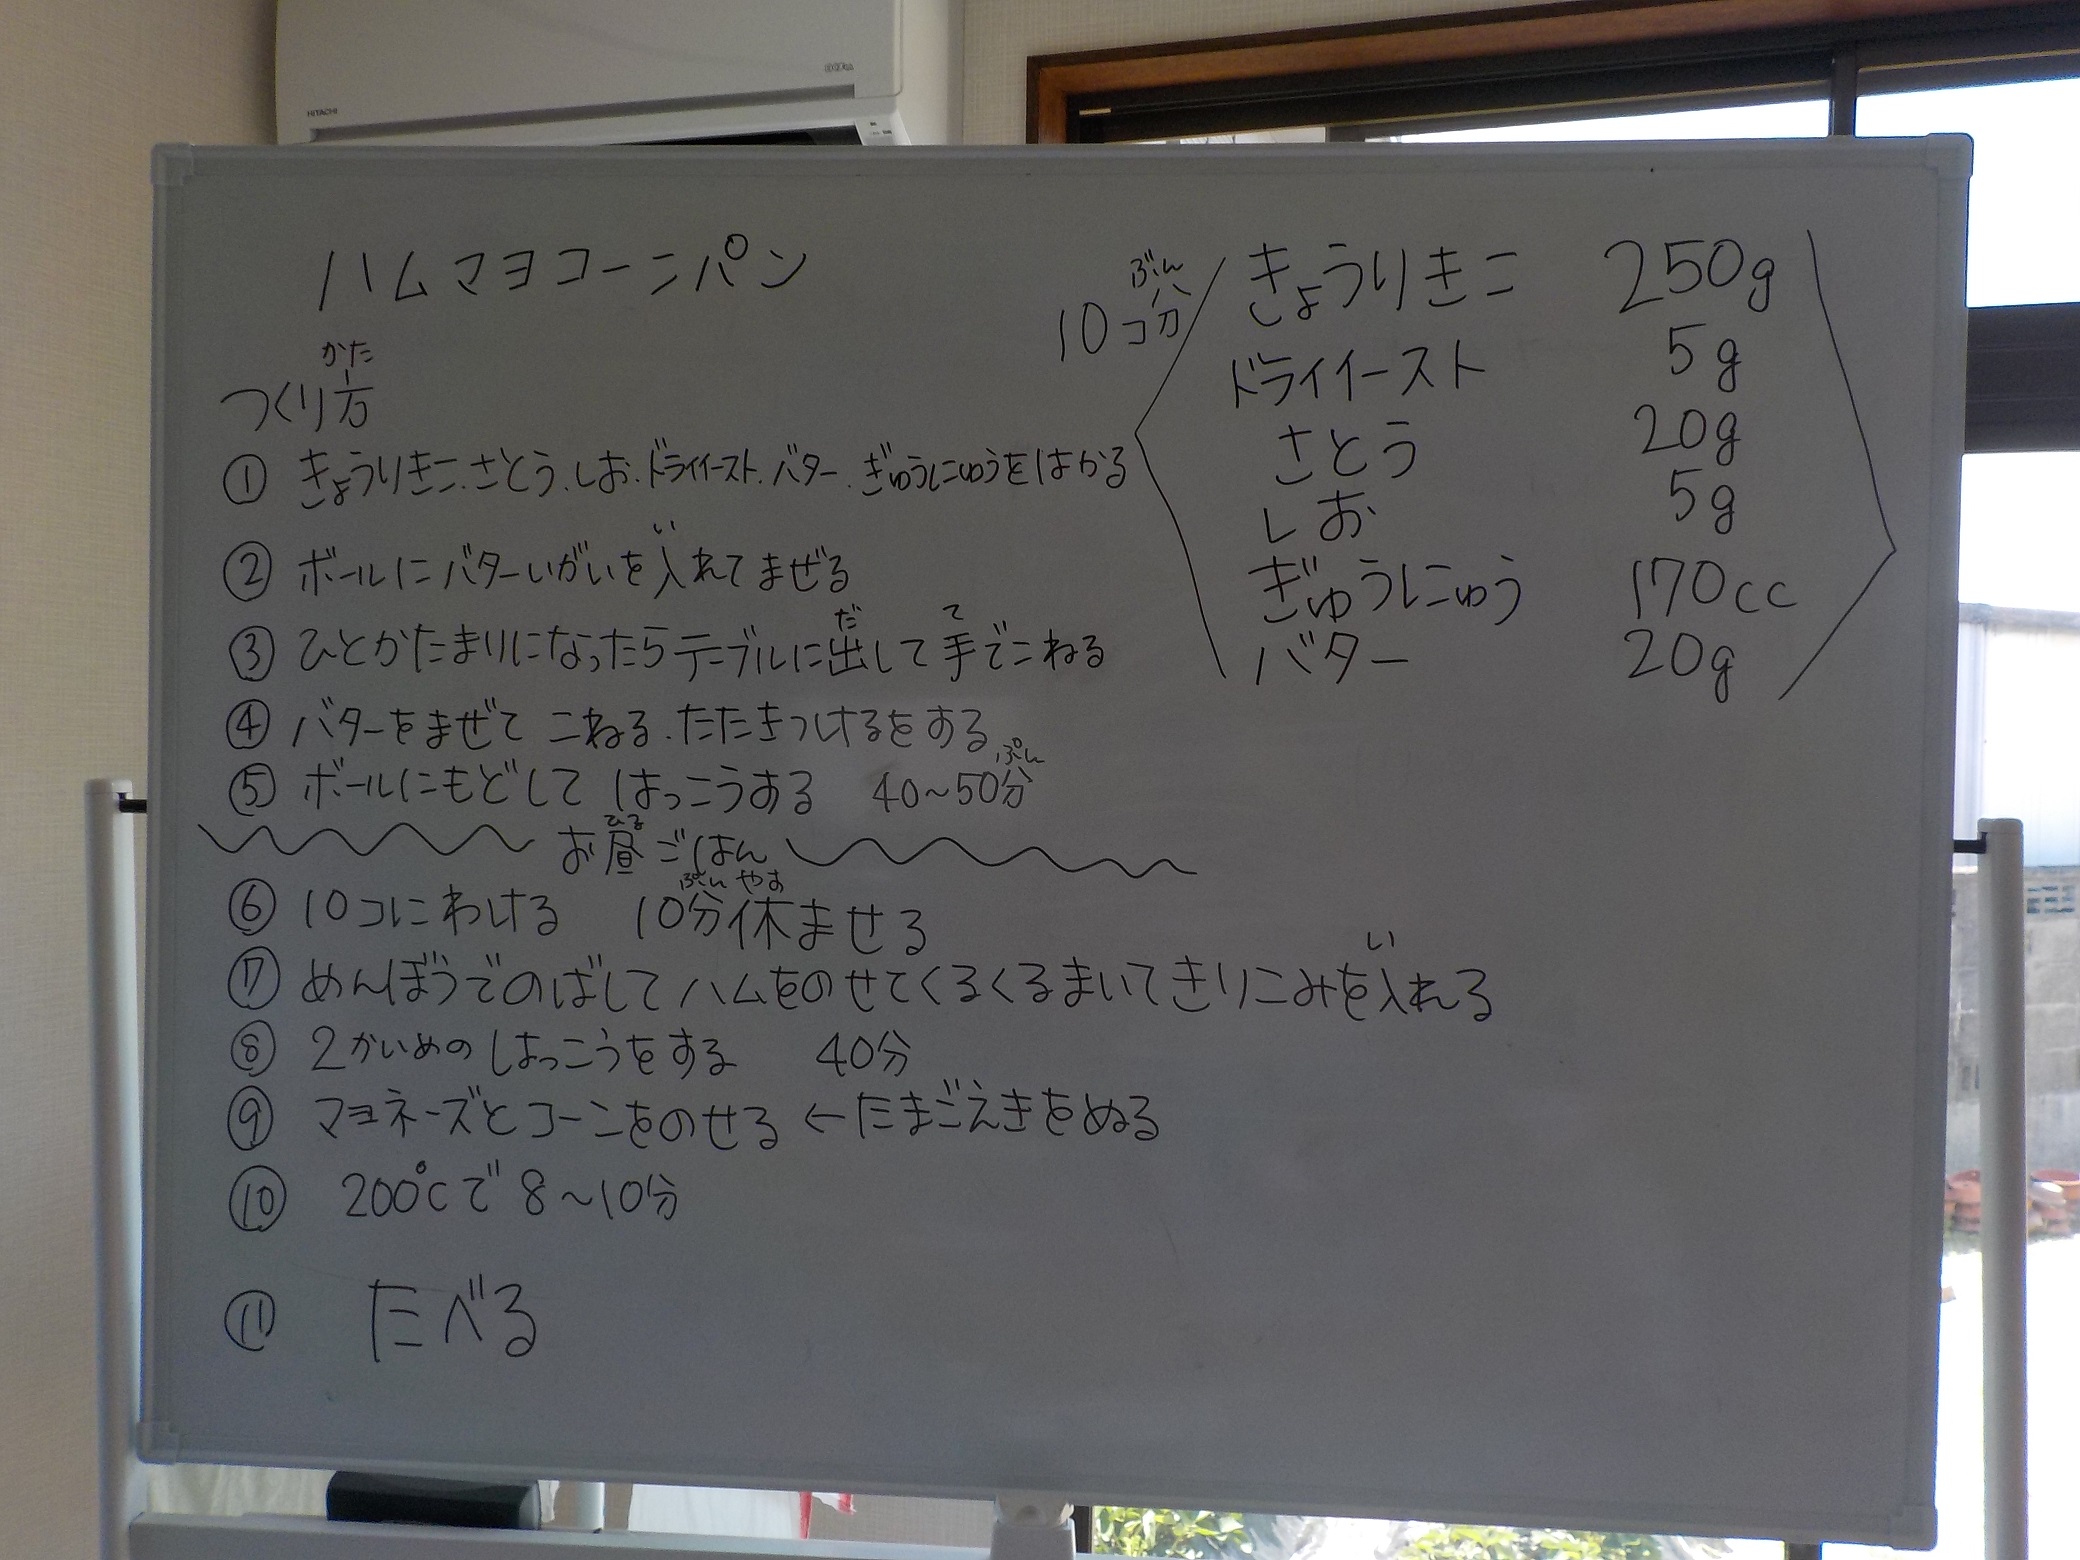 HITACHI
ハムマヨコーンパン
かた
つくり方
① きょうりきこ.さとう.しお.ドライイースト.バター.ぎゅうにゅうをはかる
い
② ボールにバターいがいを入れてまぜる
だ て
③ ひとかたまりになったらテーブルに出して手でこねる
④ バターをまぜて こねる.たたきつけるをする
ぷん
⑤ ボールにもどして はっこうする 40~50分
ひる
お昼ごはん
ぷん やす
⑥ 10コにわける 10分休ませる
い
⑦ めんぼうでのばしてハムをのせてくるくるまいてきりこみを入れる
⑧ 2かいめのはっこうをする 40分
⑨ マヨネーズとコーンをのせる ←たまごえきをぬる
⑩ 200℃で8~10分
⑪ たべる
ぶん
10コ分
きょうりきこ 250g
ドライイースト 5g
さとう 20g
しお 5g
ぎゅうにゅう 170cc
バター 20g